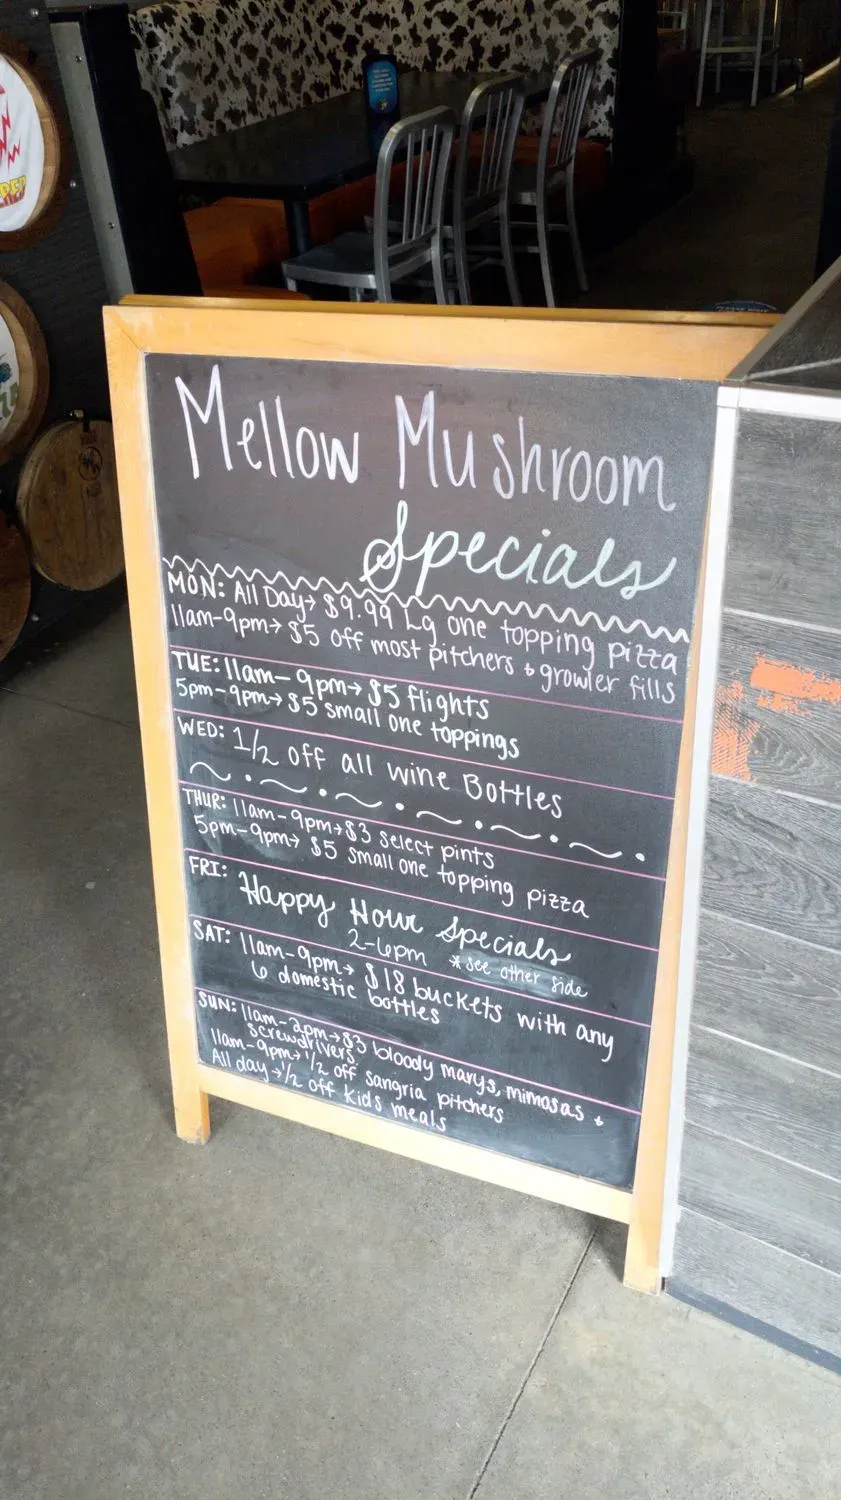 Mellow Mushroom
Specials
MON: All Day→ $9.99 Lg one topping pizza
11am-9pm→ $5 off most pitchers & growler fills
TUE: 11am-9pm→ $5 flights
5pm-9pm→ $5 small one toppings
WED: 1/2 off all wine Bottles
THUR: 11am-9pm→$3 select pints
5pm-9pm→ $5 small one topping pizza
FRI: Happy Hour Specials
2-6pm *see other side
SAT: 11am-9pm→ $18 buckets with any
6 domestic bottles
SUN: 11am-2pm→$3 bloody marys, mimosas &
screwdrivers
11am-9pm→1/2 off sangria pitchers
All day→1/2 off kids meals